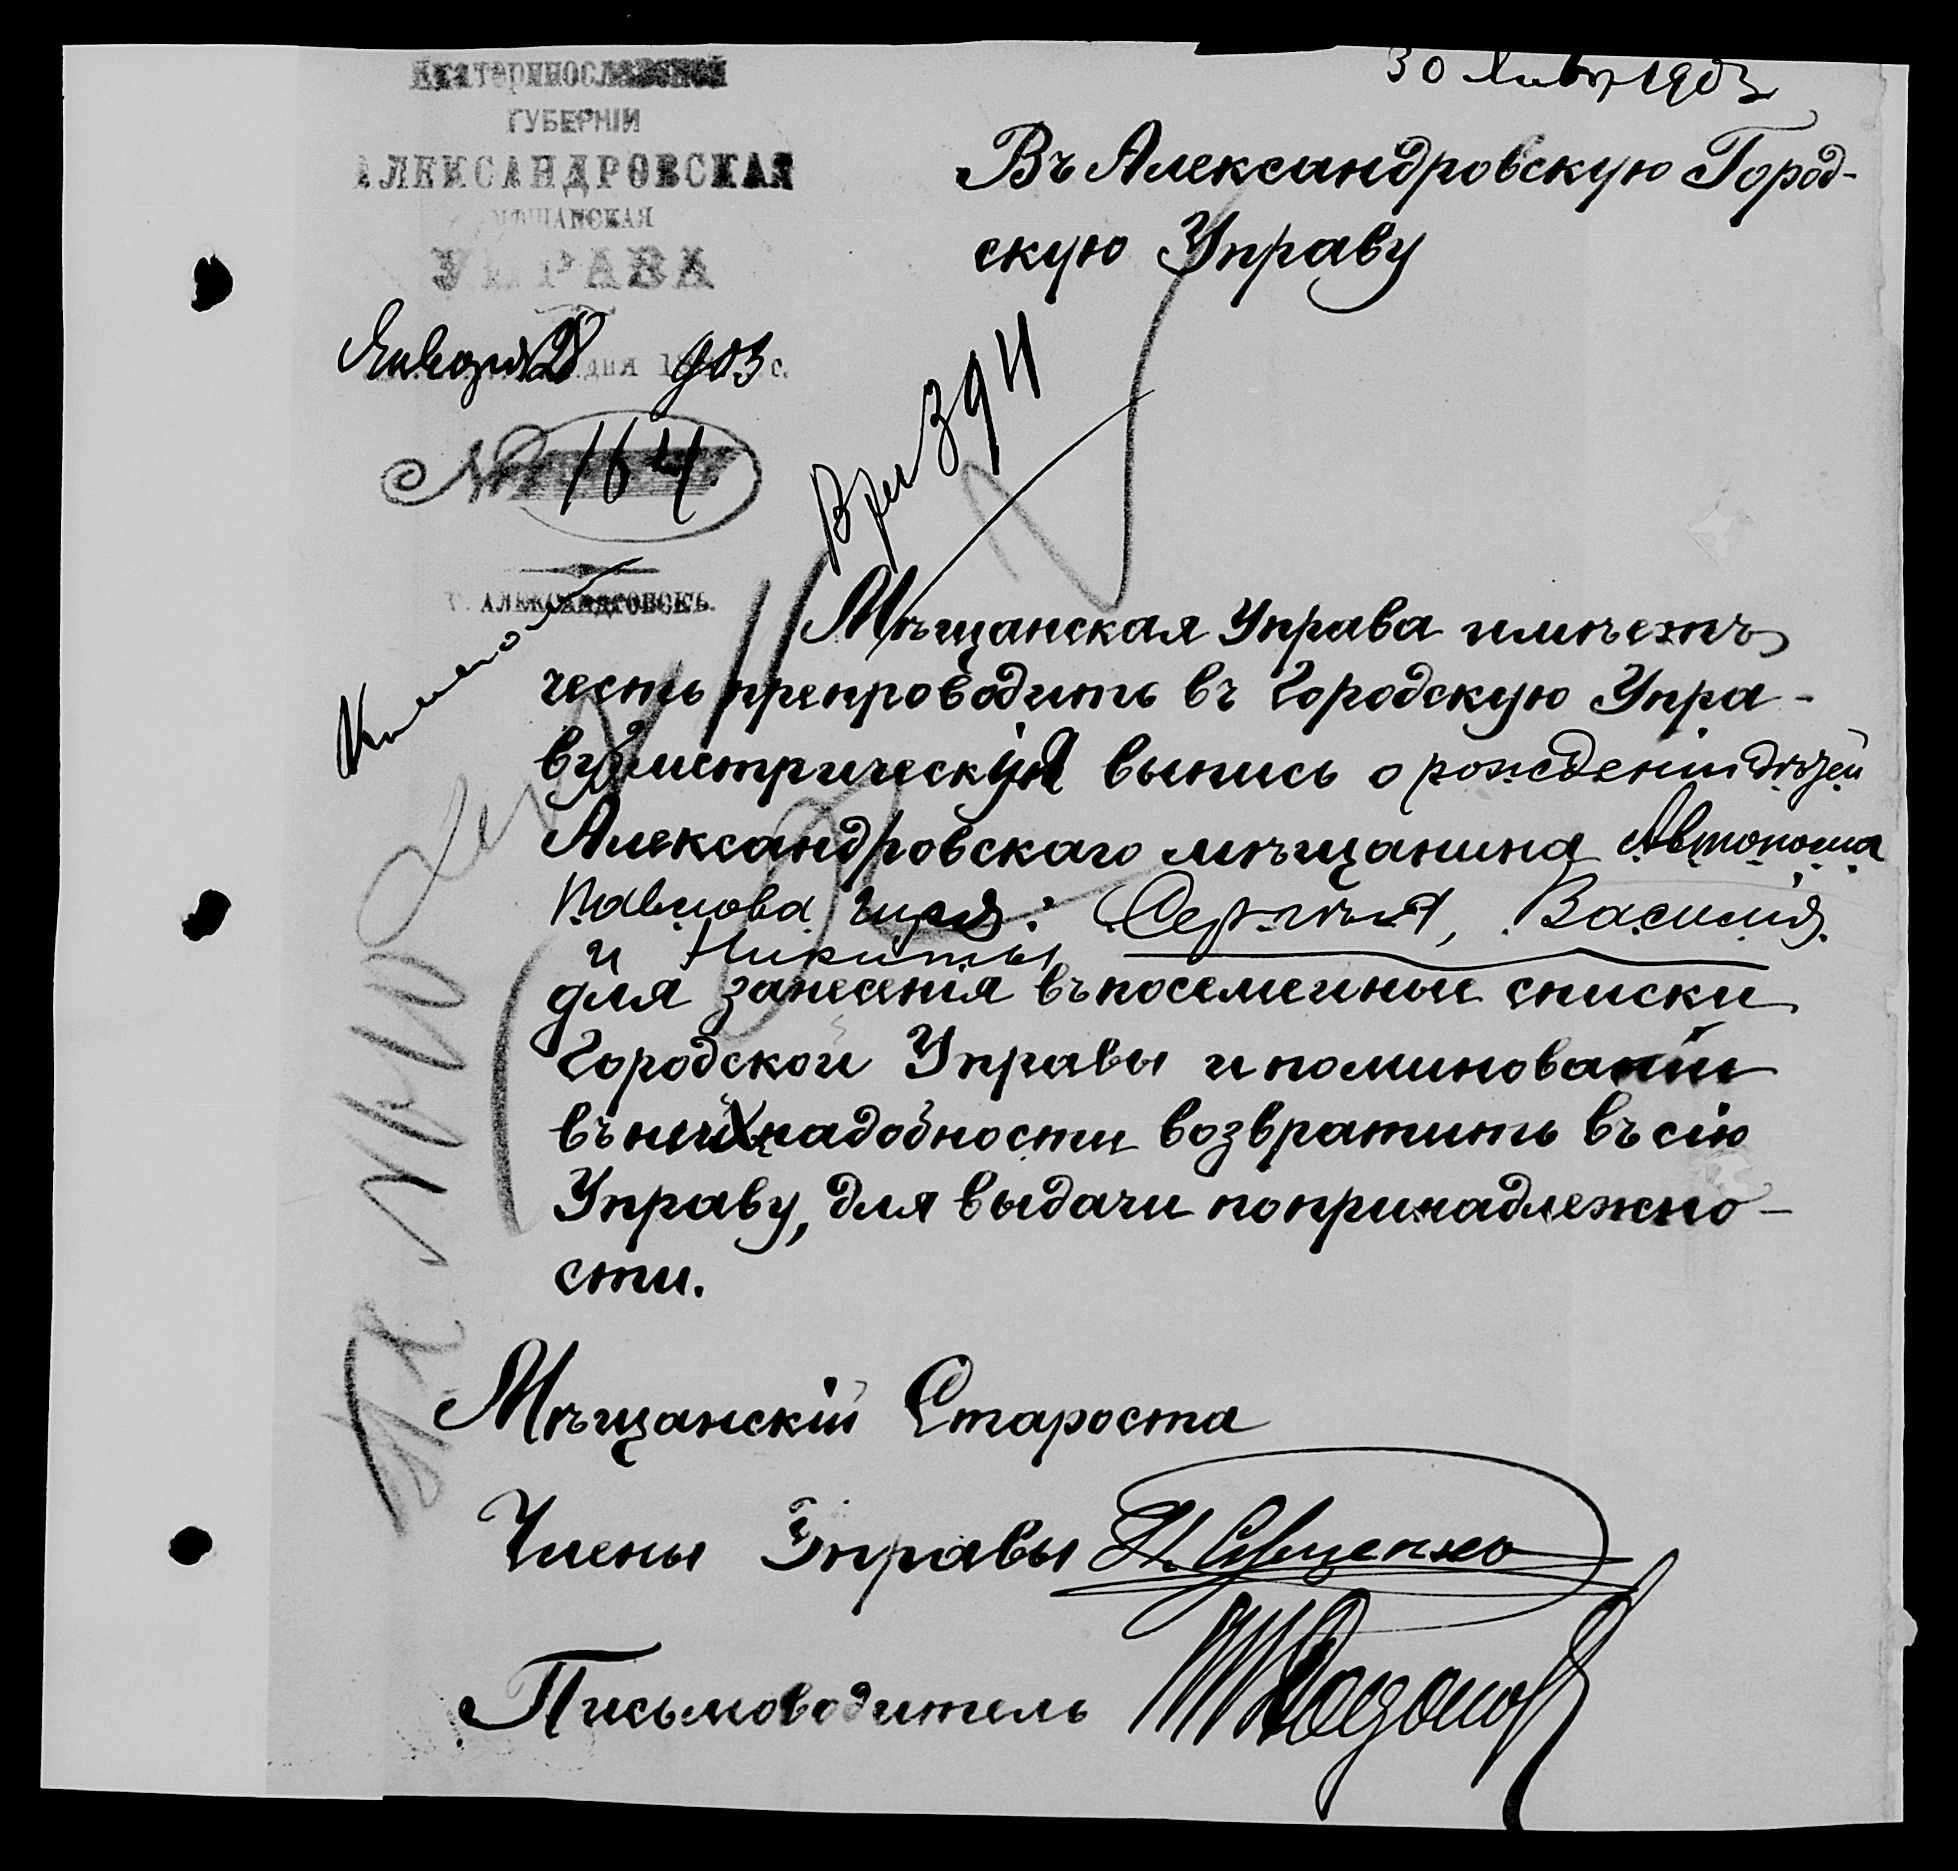 30 Янв 1903
Екатеринославской
ГУБЕРНІИ
АЛЕКСАНДРОВСКАЯ
МѢЩАНСКАЯ
УПРАВА
Января 28 дня 1903 с.
№ 164
Г. АЛЕКСАНДРОВСКЪ.
Въ Александровскую Город-
скую Управу
394
Мѣщанская Управа имѣетъ
честь препроводить въ Городскую Упра-
ву метрическія выпись о рожденіи дѣтей
Александровскаго мѣщанина Автонома
Павлова : Сергѣя, Василія
и Никиты
для занесенія въ посемейные списки
Городской Управы и поминованіи
въ них надобности возвратить въ сію
Управу, для выдачи по принадлежно-
сти.
Мѣщанскій Староста
Члены Управы
Письмоводитель